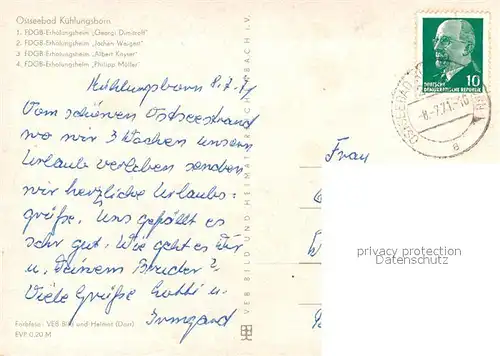 Ostseebad Kühlungsborn
1. FDGB-Erholungsheim „Georgi Dimitroff"
2. FDGB-Erholungsheim „Jochen Weigert"
3. FDGB-Erholungsheim „Albert Kayser"
4. FDGB-Erholungsheim „Philipp Müller"
Kühlungsborn 8.7.71
Vom schönen Ostseestrand
wo wir 3 Wochen unsern
Urlaub verleben senden
wir herzliche Urlaubs-
grüße. Uns gefällt es
sehr gut. Wie geht es Dir
u. Deinem Bruder?
Viele Grüße Lotti u.
Irmgard
Farbfoto: VEB Bild und Heimat (Darr)
EVP 0,20 M
VEB BILD UND HEIMAT REICHENBACH I. V.
10
DEUTSCHE
DEMOKRATISCHE REPUBLIK
Frau
privacy protection
Datenschutz